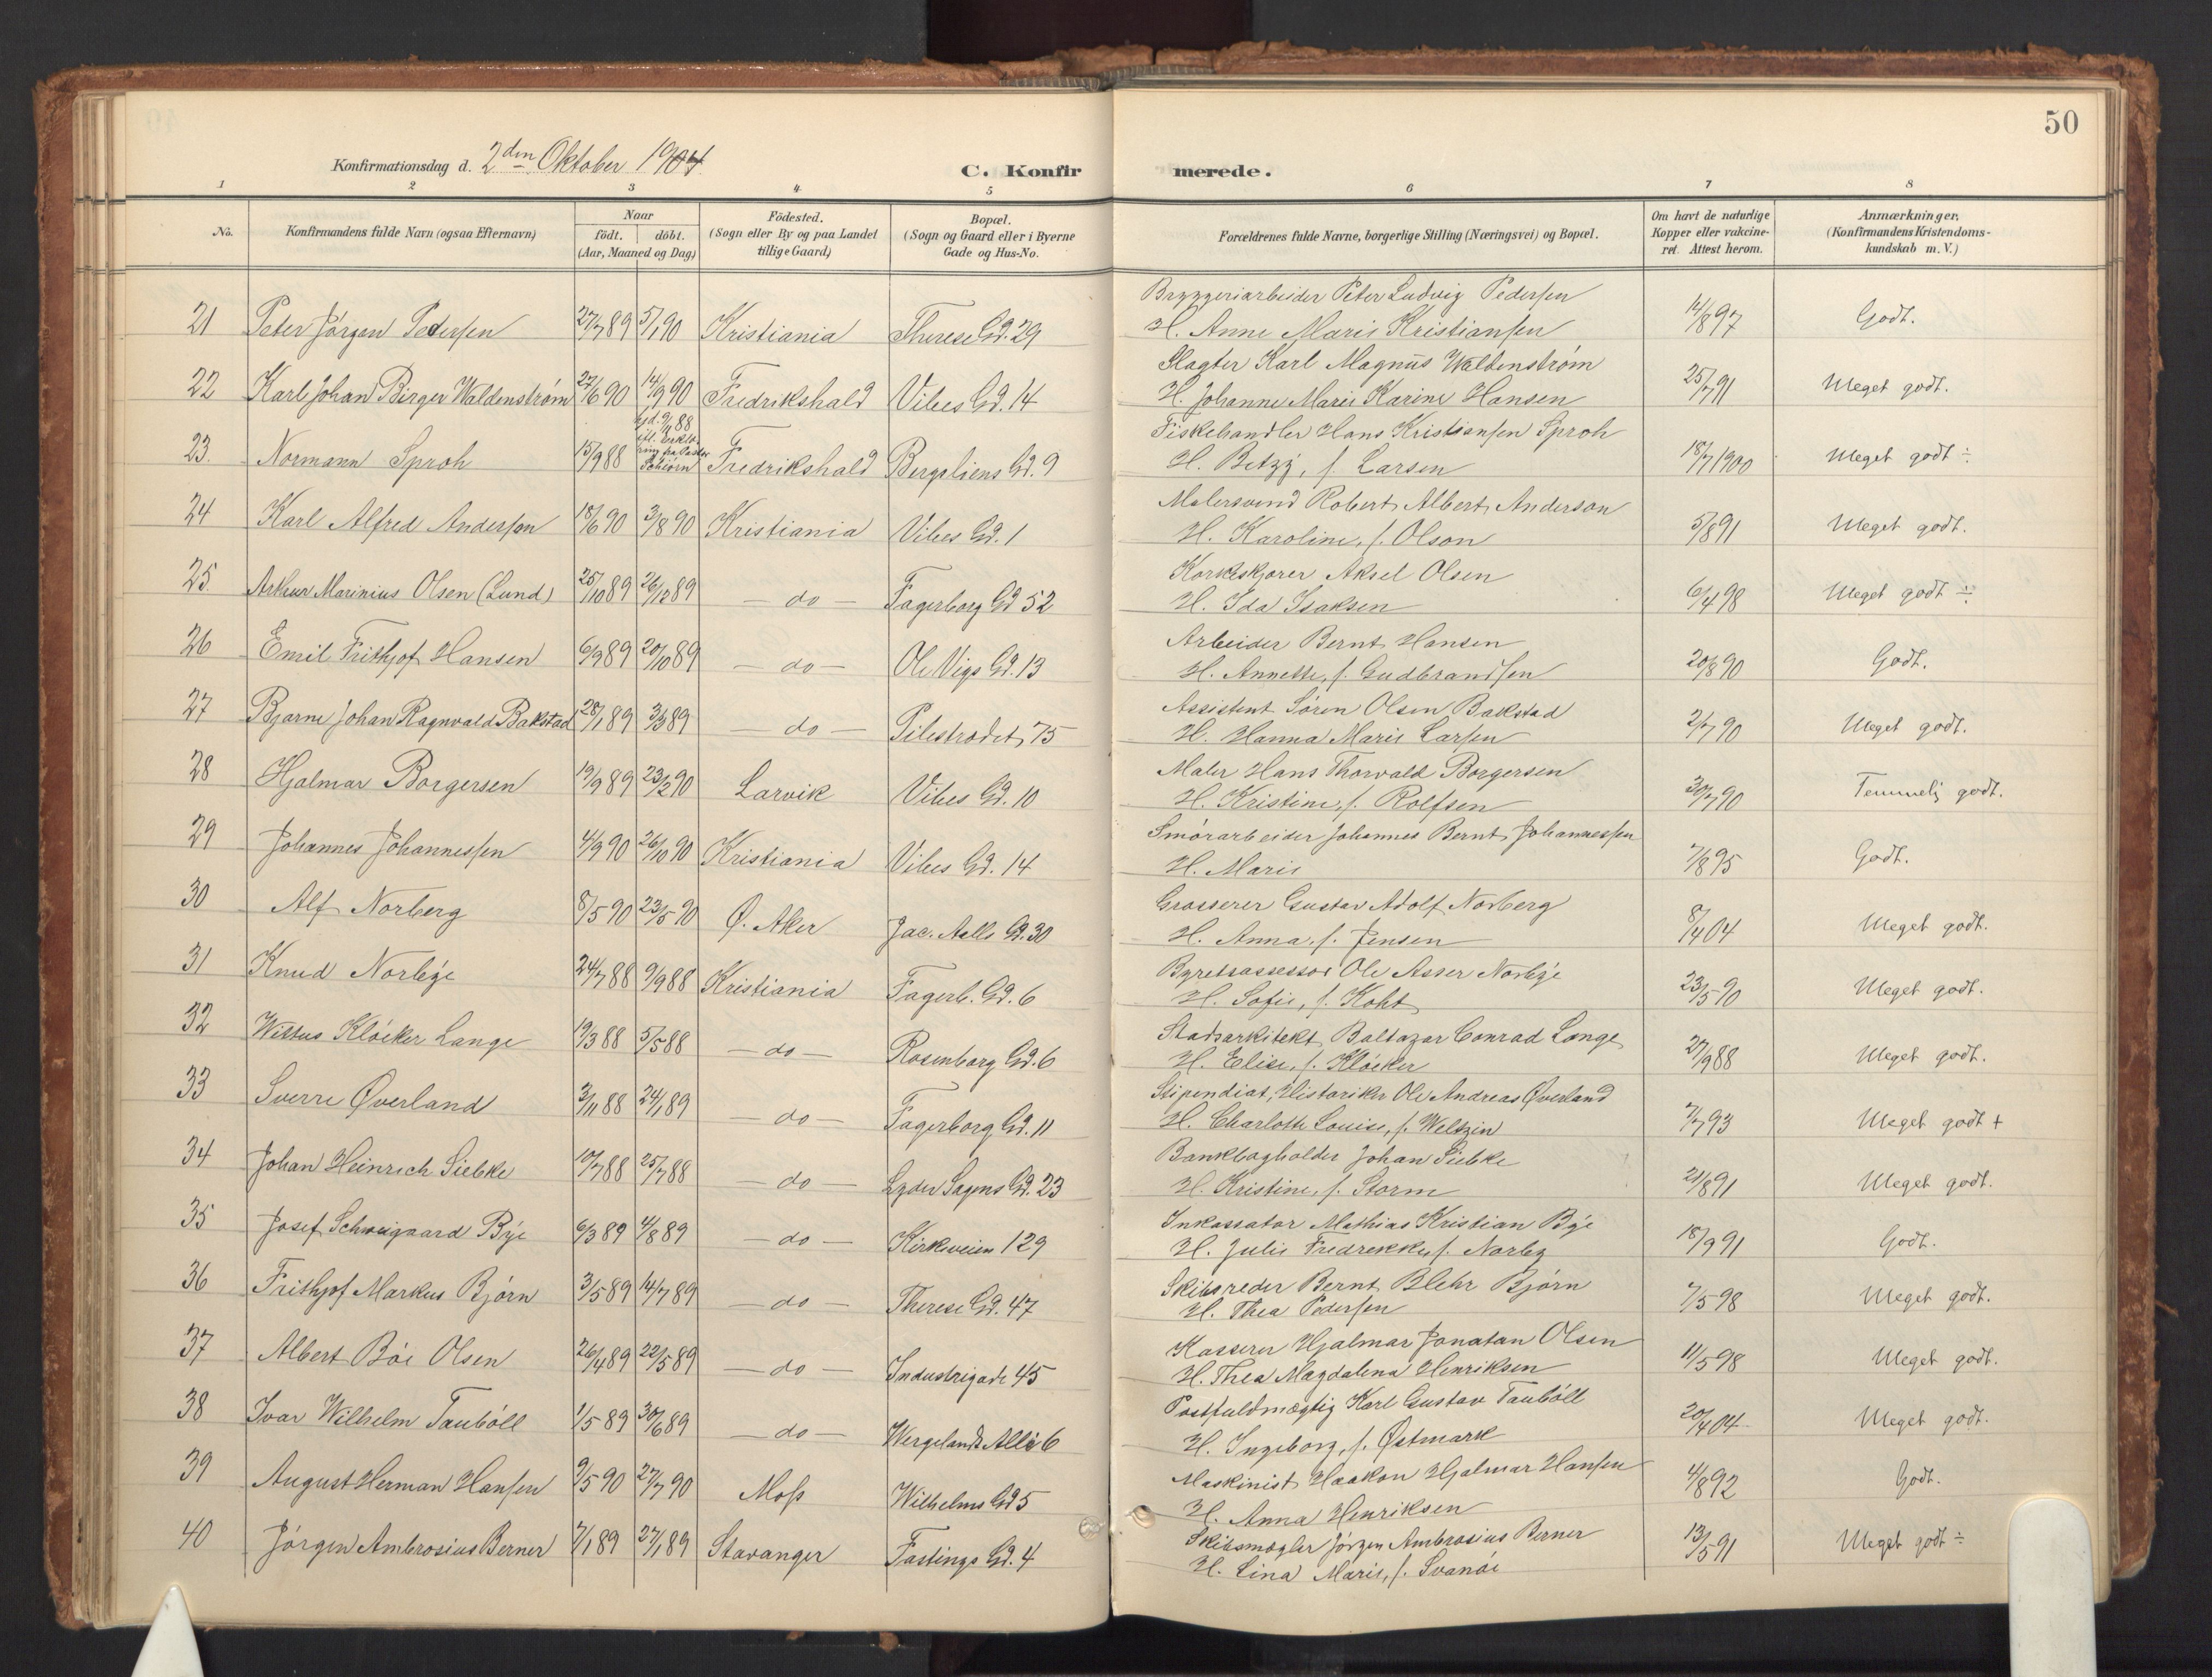 50
Konfirmationsdag d. 2den Oktober 1904
C. Konfirmerede.
1 2 3 4 5 6 7 8
No. Konfirmandens fulde Navn (ogsaa Efternavn) Naar födt. döbt. (Aar, Maaned og Dag) Födested. (Sogn eller By og paa Landet tillige Gaard) Bopæl. (Sogn og Gaard eller i Byerne Gade og Hus-No. Forældrenes fulde Navne, borgerlige Stilling (Næringsvei) og Bopæl. Om havt de naturlige Kopper eller vakcineret. Attest herom. Anmærkninger. (Konfirmandens Kristendomskundskab m. V.)
Bryggeriarbeider Peter Ludvig Pedersen
21 Peter Jörgen Pedersen 27/7 89 5/1 90 Kristiania Therese Gd. 29 H. Anne Marie Kristiansen 14/8 97 Godt.
Slagter Karl Magnus Waldenström
22 Karl Johan Birger Waldenström 27/6 90 14/9 90 Fredrikshald Vibes Gd. 14 H. Johanne Marie Karine Hansen 25/7 91 Meget godt.
Fiskehandler Hans Kristiansen Sproh
23. Normann Sproh 15/9 88 Fredrikshald Bergsliens Gd. 9 H. Betzy, f. Larsen 18/7 1900 Meget godt ÷
Malersvend Robert Albert Anderson
24 Karl Alfred Anderson 18/6 90 3/8 90 Kristiania Vibes Gd. 1 H. Karoline, f. Olson 5/8 91 Meget godt.
Korkeskjærer Aksel Olsen
25. Arthur Marinius Olsen (Lund) 25/10 89 26/12 89 — do — Fagerborg Gd 52 H. Ida Isaksen 6/4 98 Meget godt ÷
Arbeider Bernt Hansen
26 Emil Frithjof Hansen 6/9 89 20/10 89 — do — Ole Vigs Gd. 13 H. Annette, f. Gudbrandsen 20/8 90 Godt.
Assistent Sören Olsen Bakstad
27 Bjarne Johan Ragnvald Bakstad 28/1 89 3/3 89 — do — Pilestrædet 75 H. Hanna Marie Larsen 2/7 90 Meget godt.
Maler Hans Thorvald Borgersen
28 Hjalmar Borgersen 19/9 89 23/2 90 Larvik Vibes Gd. 10 H. Kristine, f. Rolfsen 30/7 90 Temmelig godt.
Smörarbeider Johannes Bernt Johannessen
29 Johannes Johannessen 4/9 90 26/10 90 Kristiania Vibes Gd. 14 H. Marie 7/8 95 Godt.
Grosserer Gustav Adolf Norberg
30 Alf Norberg 8/5 90 23/5 90 Ø. Aker Jac. Aalls Gd. 30 H. Anna, f. Jensen 8/4 04 Meget godt.
Byretsassessor Ole Asser Norbye
31 Knud Norbye 24/7 88 9/9 88 Kristiania Fagerb. Gd. 6 H. Sofie, f. Koht 23/5 90 Meget godt.
Stadsarkitekt Baltazar Conrad Lange
32 Wittus Klöcker Lange 19/3 88 5/5 88 — do — Rosenborg Gd. 6 H. Elise, f. Klöcker 27/9 88 Meget godt.
Stipendiat, Historiker Ole Andreas Øverland
33 Sverre Øverland 3/11 88 24/1 89 — do — Fagerborg Gd. 11 H. Charlotte Louise, f. Weltzin 7/7 93 Meget godt +
Bankbogholder Johan Siebke
34 Johan Heinrich Siebke 10/7 88 25/7 88 — do — Lyder Sagens Gd. 23 H. Kristine, f. Storm 21/8 91 Meget godt.
Inkassator Mathias Kristian Bye
35 Josef Schweigaard Bye 6/3 89 4/8 89 — do — Kirkeveien 129 H. Julie Fredrekke, f. Norby 18/9 91 Godt.
Skibsreder Bernt Blehr Björn
36 Frithjof Markus Björn 3/5 89 14/7 89 — do — Therese Gd. 47 H. Thea Pedersen 7/5 98 Meget godt.
Kasserer Hjalmar Jonatan Olsen
37 Albert Böe Olsen 26/4 89 22/5 89 — do — Industrigade 45 H. Thea Magdalena Henriksen 11/5 98 Meget godt.
Postfuldmægtig Karl Gustav Tauböll
38 Ivar Wilhelm Tauböll 1/5 89 30/6 89 — do — Wergelands Allé 6 H. Ingeborg, f. Østmark 20/4 04 Meget godt.
Maskinist Haakon Hjalmar Hansen
39 August Herman Hansen 9/5 90 27/7 90 Moss Wilhelms Gd 5 H. Anna Henriksen 4/8 92 Godt.
Skibsmægler Jörgen Ambrosius Berner
40 Jörgen Ambrosius Berner 7/1 89 27/1 89 Stavanger Fastings Gd. 4 H. Lina Marie, f. Svanöe 13/5 91 Meget godt ÷